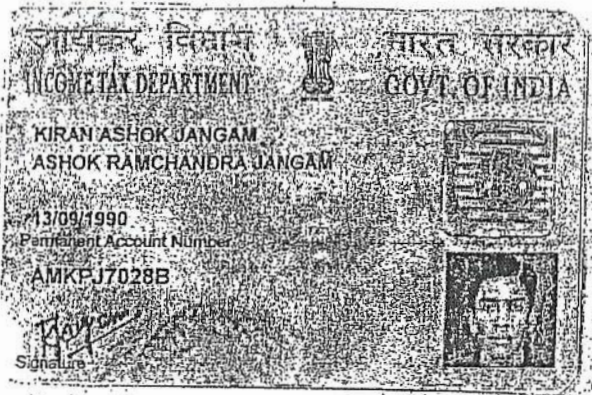 आयकर विभाग
भारत सरकार
INCOME TAX DEPARTMENT
GOVT. OF INDIA
KIRAN ASHOK JANGAM
ASHOK RAMCHANDRA JANGAM
13/09/1990
Permanent Account Number
AMKPJ7028B
Signature